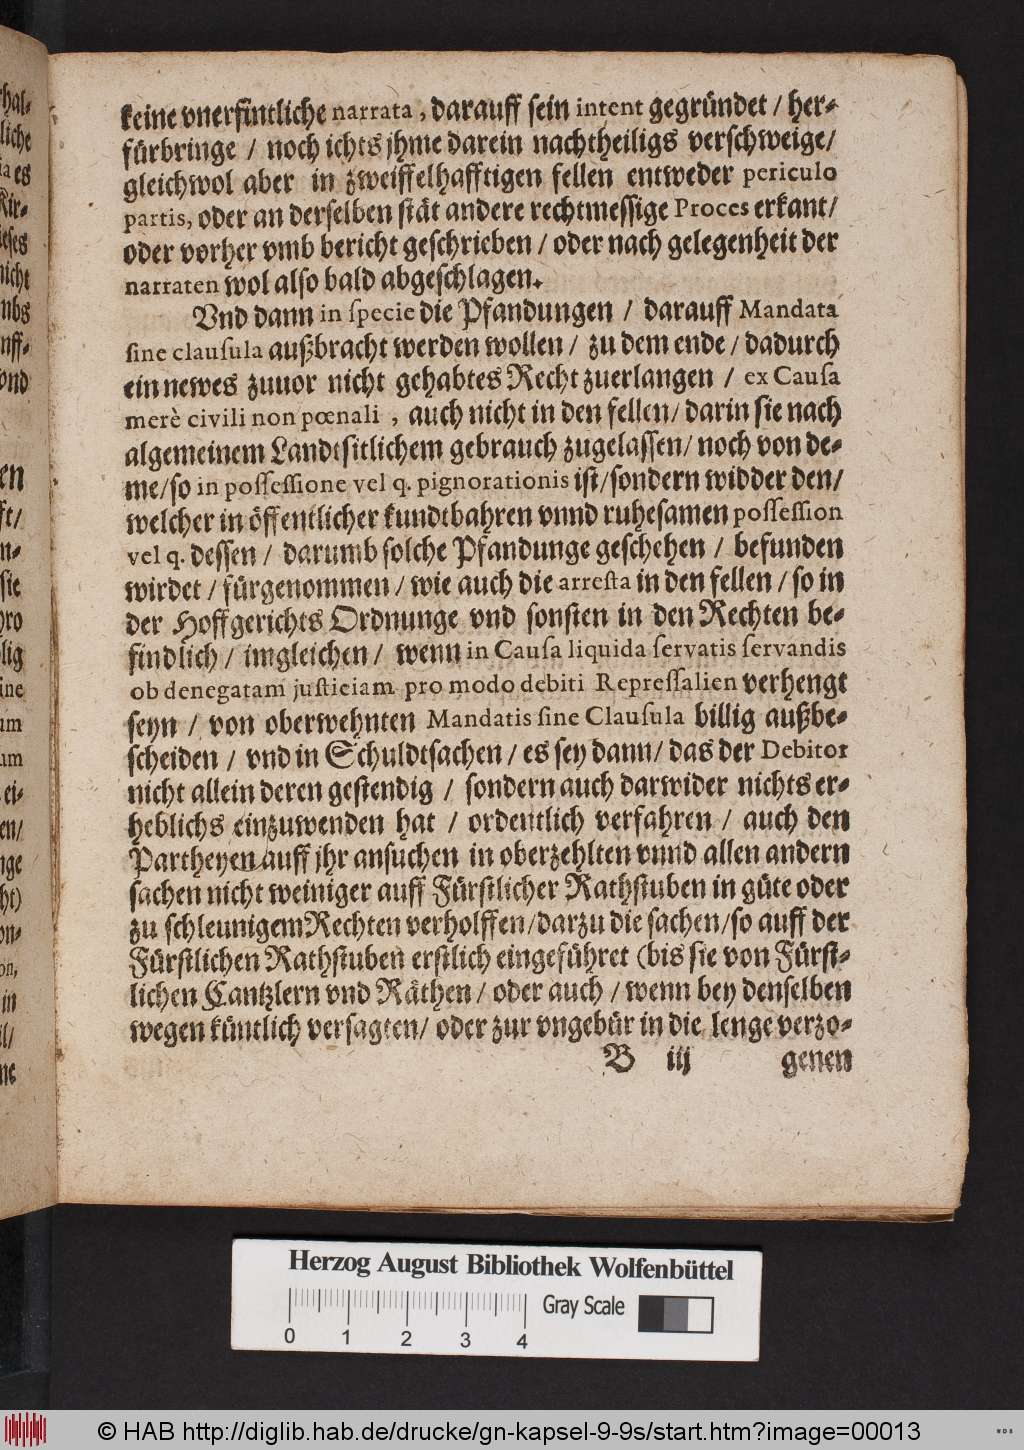 keine vnerfintliche narrata, darauff sein intent gegründet / her-
fürbringe / noch ichts jhme darein nachtheiligs verschweige/
gleichwol aber in zweiffelhafftigen fellen entweder periculo
partis, oder an derselben stät andere rechtmessige Proces erkant/
oder vorher vmb bericht geschrieben / oder nach gelegenheit der
narraten wol also bald abgeschlagen.
Vnd dann in specie die Pfandungen / darauff Mandata
sine clausula außbracht werden wollen / zu dem ende / dadurch
ein newes zuuor nicht gehabtes Recht zuerlangen / ex Causa
merè civili non pœnali , auch nicht in den fellen/ darin sie nach
algemeinem Landtsitlichem gebrauch zugelassen/ noch von de-
me/so in possessione vel q. pignorationis ist/sondern widder den/
welcher in öffentlicher kundtbahren vnnd ruhesamen possession
vel q. dessen / darumb solche Pfandunge geschehen / befunden
wirdet / fürgenommen / wie auch die arresta in den fellen / so in
der Hoffgerichts Ordnunge vnd sonsten in den Rechten be-
findlich / imgleichen / wenn in Causa liquida servatis servandis
ob denegatam justiciam pro modo debiti Repressalien verhengt
seyn / von oberwehnten Mandatis sine Clausula billig außbe-
scheiden / vnd in Schuldtsachen / es sey dann/ das der Debitor
nicht allein deren gestendig / sondern auch darwider nichts er-
heblichs einzuwenden hat / ordentlich verfahren / auch den
Partheyen auff jhr ansuchen in oberzehlten vnnd allen andern
sachen nicht weiniger auff Fürstlicher Rathstuben in güte oder
zu schleunigem Rechten verholffen/darzu die sachen/so auff der
Fürstlichen Rathstuben erstlich eingeführet (bis sie von Fürst-
lichen Cantzlern vnd Räthen / oder auch / wenn bey denselben
wegen küntlich versagten/ oder zur vngebür in die lenge verzo-
B iij genen
Herzog August Bibliothek Wolfenbüttel
Gray Scale
0 1 2 3 4
© HAB http://diglib.hab.de/drucke/gn-kapsel-9-9s/start.htm?image=00013